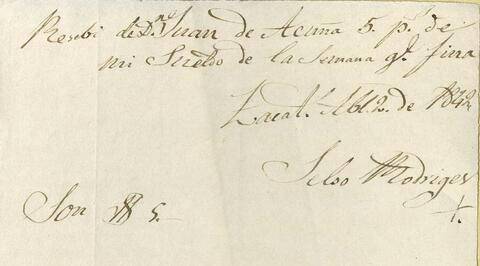 Resebi de Dn. Juan de Acuña 5. ps. de
mi Sueldo de la Semana qe. fina
Zacats. Abl. 2. de 1842
Selso Rodriges
Son 5.